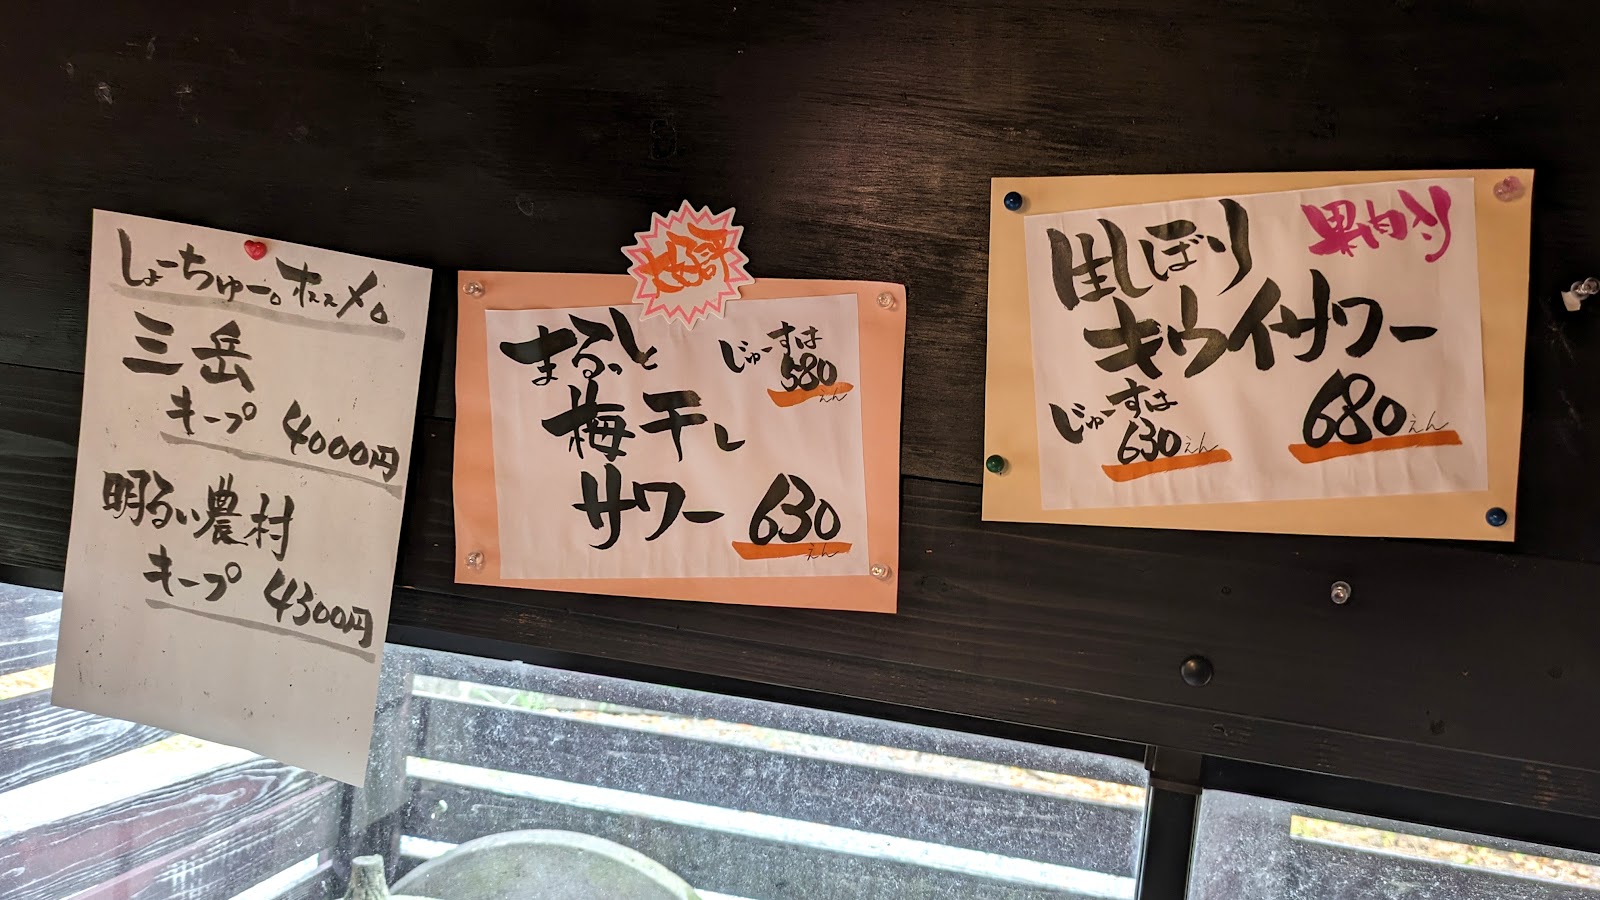 しょーちゅー。オススメ。
三岳
キープ 4000円
明るい農村
キープ 4300円
好評
まるっと
梅干し
サワー
630えん
じゅーすは
580えん
果肉入り
生しぼり
キウイサワー
680えん
じゅーすは
630えん